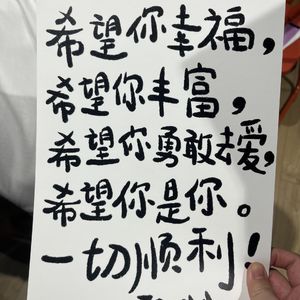 希望你幸福，
希望你丰富，
希望你勇敢去爱，
希望你是你。
一切顺利！